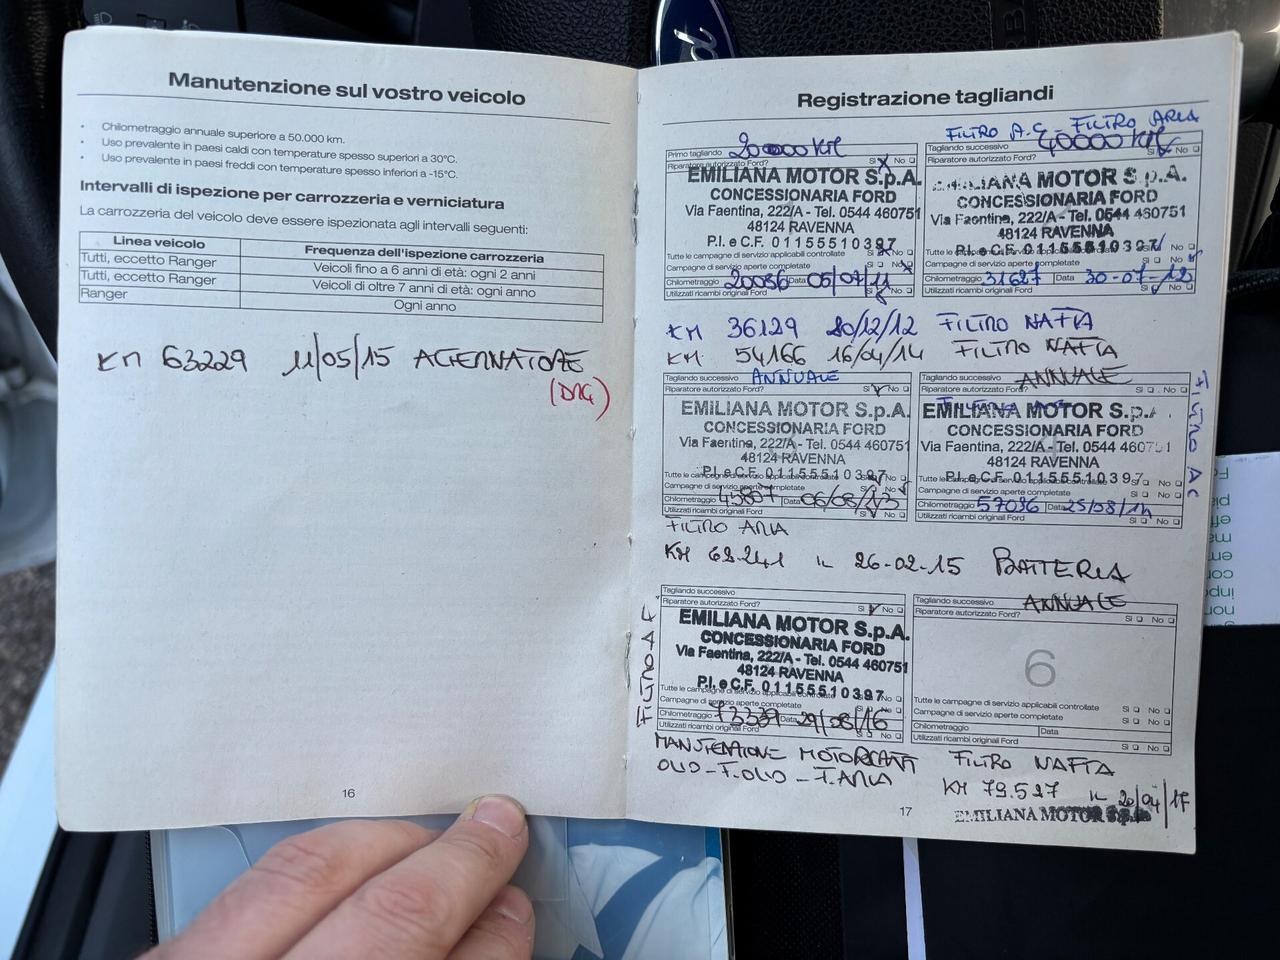 Manutenzione sul vostro veicolo
• Chilometraggio annuale superiore a 50.000 km.
• Uso prevalente in paesi caldi con temperature spesso superiori a 30°C.
• Uso prevalente in paesi freddi con temperature spesso inferiori a -15°C.
Intervalli di ispezione per carrozzeria e verniciatura
La carrozzeria del veicolo deve essere ispezionata agli intervalli seguenti:
Linea veicolo Frequenza dell'ispezione carrozzeria
Tutti, eccetto Ranger Veicoli fino a 6 anni di età: ogni 2 anni
Tutti, eccetto Ranger Veicoli di oltre 7 anni di età: ogni anno
Ranger Ogni anno
KM 63229 11/05/15 ALTERNATORE
16
Registrazione tagliandi
FILTRO A.C. FILTRO ARIA
Primo tagliando 20000 KM
Riparatore autorizzato Ford? Sì No
EMILIANA MOTOR S.p.A.
CONCESSIONARIA FORD
Via Faentina, 222/A - Tel. 0544 460751
48124 RAVENNA
P.I. e C.F. 01155510397
Tutte le campagne di servizio applicabili controllate
Campagne di servizio aperte completate
Chilometraggio 20086 Data
Utilizzati ricambi originali Ford
Tagliando successivo 40000 KM
Riparatore autorizzato Ford? Sì No
EMILIANA MOTOR S.p.A.
CONCESSIONARIA FORD
Via Faentina, 222/A - Tel. 0544 460751
48124 RAVENNA
P.I. e C.F. 01155510397
Tutte le campagne di servizio applicabili controllate Sì No
Campagne di servizio aperte completate
Chilometraggio 31627 Data 30-07-12
Utilizzati ricambi originali Ford Sì No
KM 36129 20/12/12 FILTRO NAFTA
KM. 54166 16/04/14 FILTRO NAFTA
Tagliando successivo ANNUALE
Riparatore autorizzato Ford? Sì No
EMILIANA MOTOR S.p.A.
CONCESSIONARIA FORD
Via Faentina, 222/A - Tel. 0544 460751
48124 RAVENNA
P.I. e C.F. 01155510397
Tutte le campagne di servizio applicabili controllate
Campagne di servizio aperte completate
Chilometraggio 45807 Data 06/08/13
Utilizzati ricambi originali Ford Sì No
FILTRO ARIA
Tagliando successivo ANNUALE
Riparatore autorizzato Ford? Sì No
EMILIANA MOTOR S.p.A.
CONCESSIONARIA FORD
Via Faentina, 222/A - Tel. 0544 460751
48124 RAVENNA
P.I. e C.F. 01155510397
Tutte le campagne di servizio applicabili controllate Sì No
Campagne di servizio aperte completate Sì No
Chilometraggio 57036 Data 25/08/14
Utilizzati ricambi originali Ford Sì No
FILTRO AC
KM 62.241 IL 26-02-15 BATTERIA
FILTRO A
Tagliando successivo
Riparatore autorizzato Ford? Sì No
EMILIANA MOTOR S.p.A.
CONCESSIONARIA FORD
Via Faentina, 222/A - Tel. 0544 460751
48124 RAVENNA
P.I. e C.F. 01155510397
Tutte le campagne di servizio applicabili controllate Sì No
Campagne di servizio aperte completate Sì No
Chilometraggio 73339 Data 29/08/16
Utilizzati ricambi originali Ford Sì No
MANUTENZIONE MOTORCRAFT
OLIO - F.OLIO - F.ARIA
Tagliando successivo ANNUALE
Riparatore autorizzato Ford? Sì No
6
Tutte le campagne di servizio applicabili controllate Sì No
Campagne di servizio aperte completate Sì No
Chilometraggio Data
Utilizzati ricambi originali Ford Sì No
FILTRO NAFTA
KM 79.527 IL 20/04/17
EMILIANA MOTOR S.p.A.
17